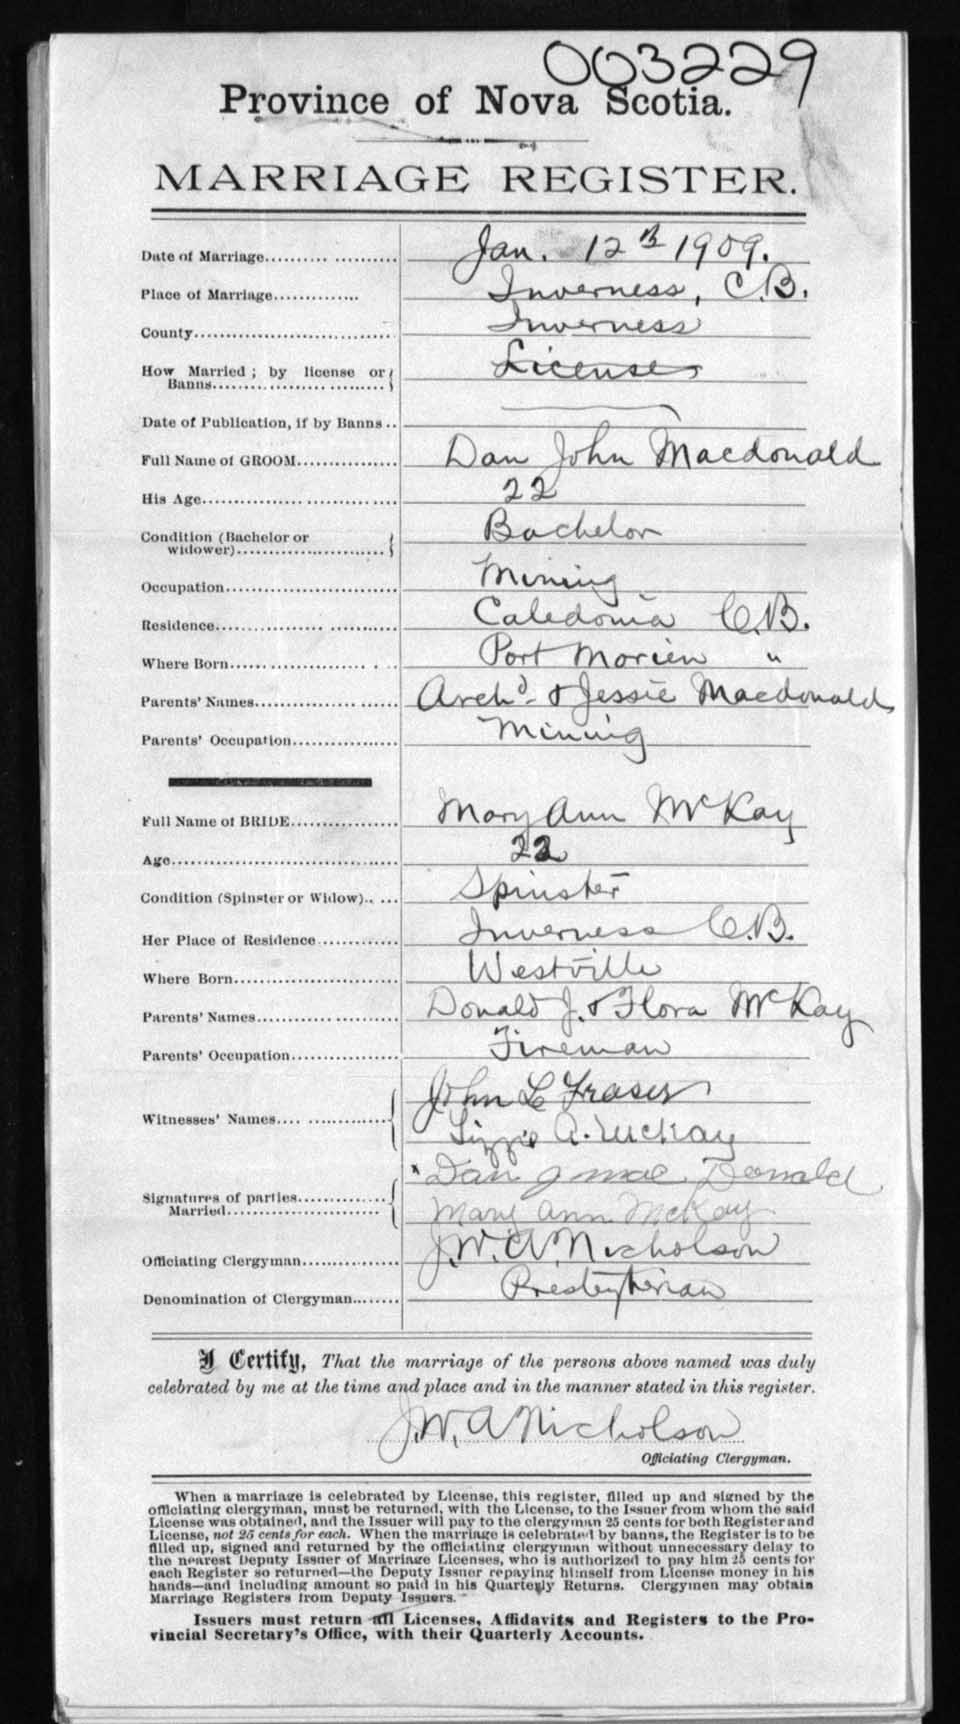 003229
Province of Nova Scotia.
MARRIAGE REGISTER.
Date of Marriage.................... Jan. 12th 1909.
Place of Marriage.............. Inverness, C.B.
County............................... Inverness
How Married; by license or License
Banns..............................
Date of Publication, if by Banns ..
Full Name of GROOM................ Dan John Macdonald
His Age............................... 22
Condition (Bachelor or Bachelor
widower)........................
Occupation............................ Mining
Residence............................ Caledonia C.B.
Where Born......................... Port Morien "
Parents' Names..................... Archd. & Jessie Macdonald
Parents' Occupation................. Mining
Full Name of BRIDE................. Mary Ann McKay
Age..................................... 22
Condition (Spinster or Widow)..... Spinster
Her Place of Residence............. Inverness C.B.
Where Born.......................... Westville
Parents' Names..................... Donald J. & Flora McKay
Parents' Occupation................. Fireman
John L Fraser
Witnesses' Names.................
Lizzie A. McKay
Dan J Mac Donald
Signatures of parties.............
Married........................ Mary Ann McKay
Officiating Clergyman.............. J.W.A. Nicholson
Denomination of Clergyman....... Presbyterian
I Certify, That the marriage of the persons above named was duly
celebrated by me at the time and place and in the manner stated in this register.
J.W. A Nicholson
Officiating Clergyman.
When a marriage is celebrated by License, this register, filled up and signed by the
officiating clergyman, must be returned, with the License, to the Issuer from whom the said
License was obtained, and the Issuer will pay to the clergyman 25 cents for both Register and
License, not 25 cents for each. When the marriage is celebrated by banns, the Register is to be
filled up, signed and returned by the officiating clergyman without unnecessary delay to
the nearest Deputy Issuer of Marriage Licenses, who is authorized to pay him 25 cents for
each Register so returned—the Deputy Issuer repaying himself from License money in his
hands—and including amount so paid in his Quarterly Returns. Clergymen may obtain
Marriage Registers from Deputy Issuers.
Issuers must return all Licenses, Affidavits and Registers to the Pro-
vincial Secretary's Office, with their Quarterly Accounts.